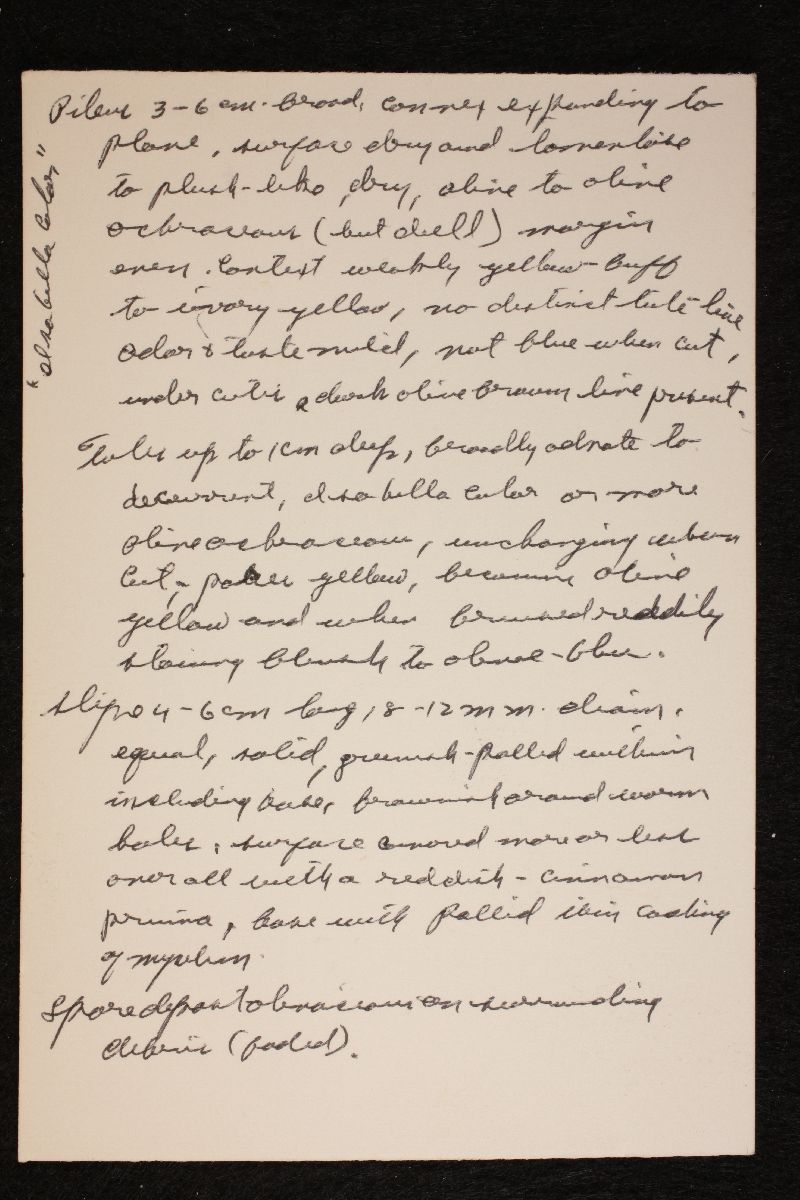 Pileus 3-6 cm. broad, convex expanding to
plane, surface dry and tomentose
to plush-like, dry, olive to olive
ochraceous (but dull) margin
even. Context weakly yellow-buff
to ivory yellow, no distinct tube line
odor & taste mild, not blue when cut,
under cutis a dark olive brown line present.
"isabella color"
Tubes up to 1 cm deep, broadly adnate to
decurrent, isabella color or more
olive ochraceous, unchanging when
cut, pores yellow, becoming olive
yellow and when bruised readily
staining bluish to olive-blue.
Stipe 4-6 cm long, 8-12 mm. diam.
equal, solid, greenish-pallid within
including base, brownish around worm
holes, surface covered more or less
over all with a reddish-cinnamon
pruina, base with pallid thin coating
of mycelium.
Spore deposit ochraceous on surrounding
debris (faded).